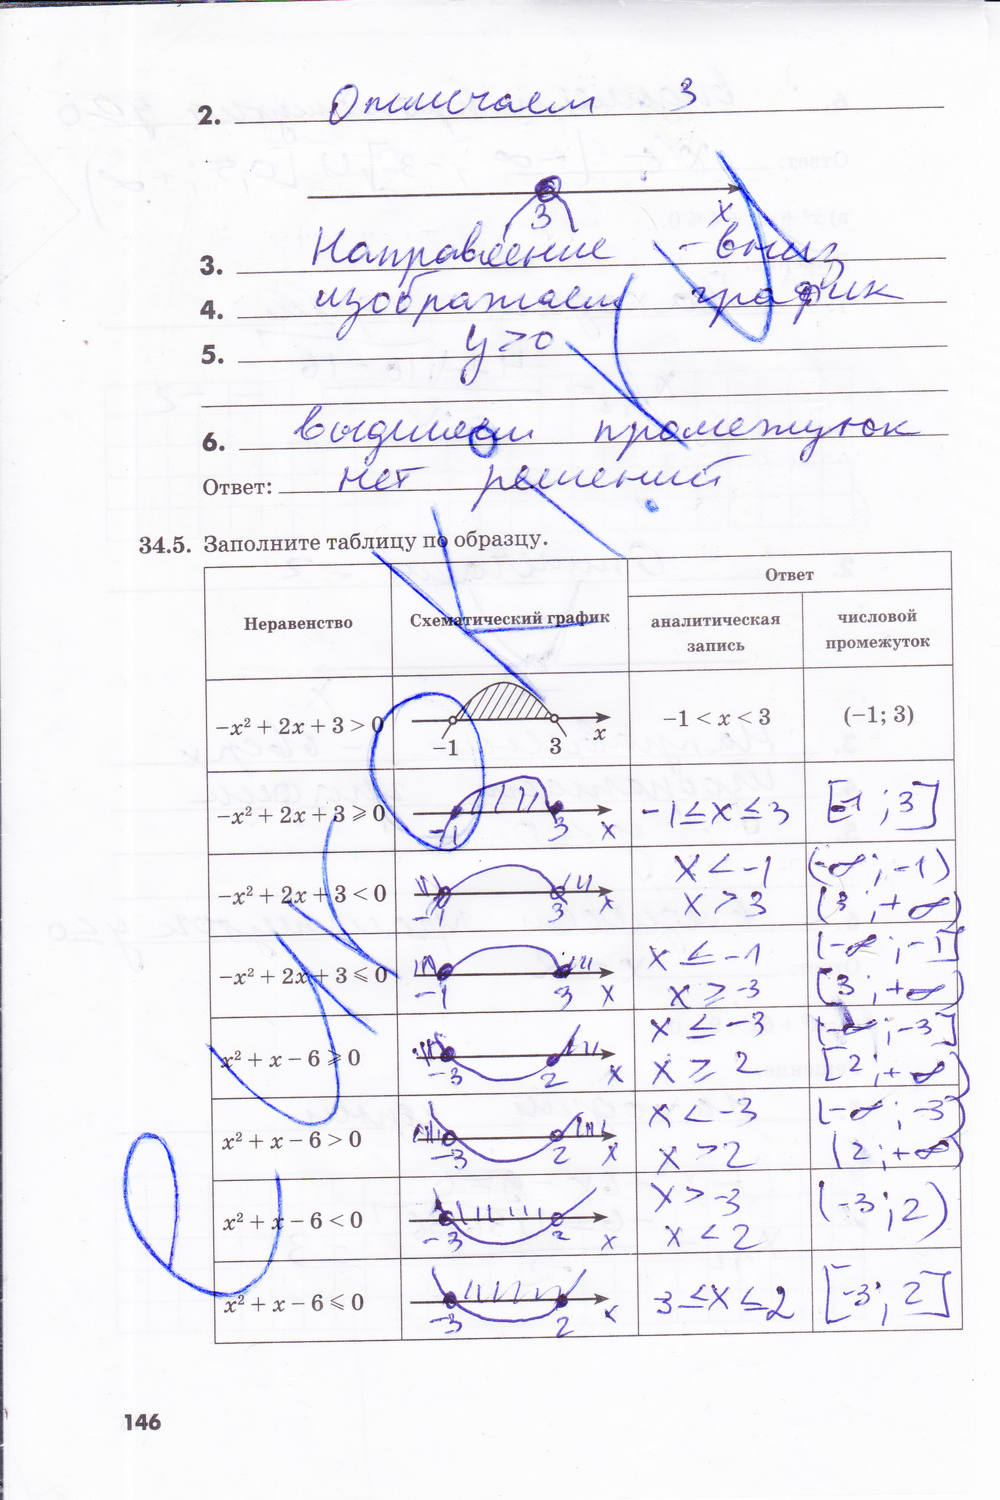 2. Отмечаем 3
3 x
3. Направление - вниз
4. изображаем график
5. y > 0
6. выделяем промежуток
Ответ: нет решений
34.5. Заполните таблицу по образцу.
Неравенство Схематический график Ответ
аналитическая запись числовой промежуток
−x² + 2x + 3 > 0 −1 3 x −1 < x < 3 (−1; 3)
−x² + 2x + 3 ⩾ 0 -1 3 x -1 ≤ x ≤ 3 [-1 ; 3]
−x² + 2x + 3 < 0 -1 3 x x < -1 (-∞ ; -1)
x > 3 (3 ; +∞)
−x² + 2x + 3 ⩽ 0 -1 3 x x ≤ -1 (-∞ ; -1]
x ≥ -3 (3 ; +∞)
x² + x − 6 ⩾ 0 -3 2 x x ≤ -3 (-∞ ; -3]
x ≥ 2 [2 ; +∞)
x² + x − 6 > 0 -3 2 x x < -3 (-∞ ; -3)
x > 2 (2 ; +∞)
x² + x − 6 < 0 -3 2 x x > -3 (-3 ; 2)
x < 2
x² + x − 6 ⩽ 0 -3 2 x 3 ≤ x ≤ 2 [-3 ; 2]
146